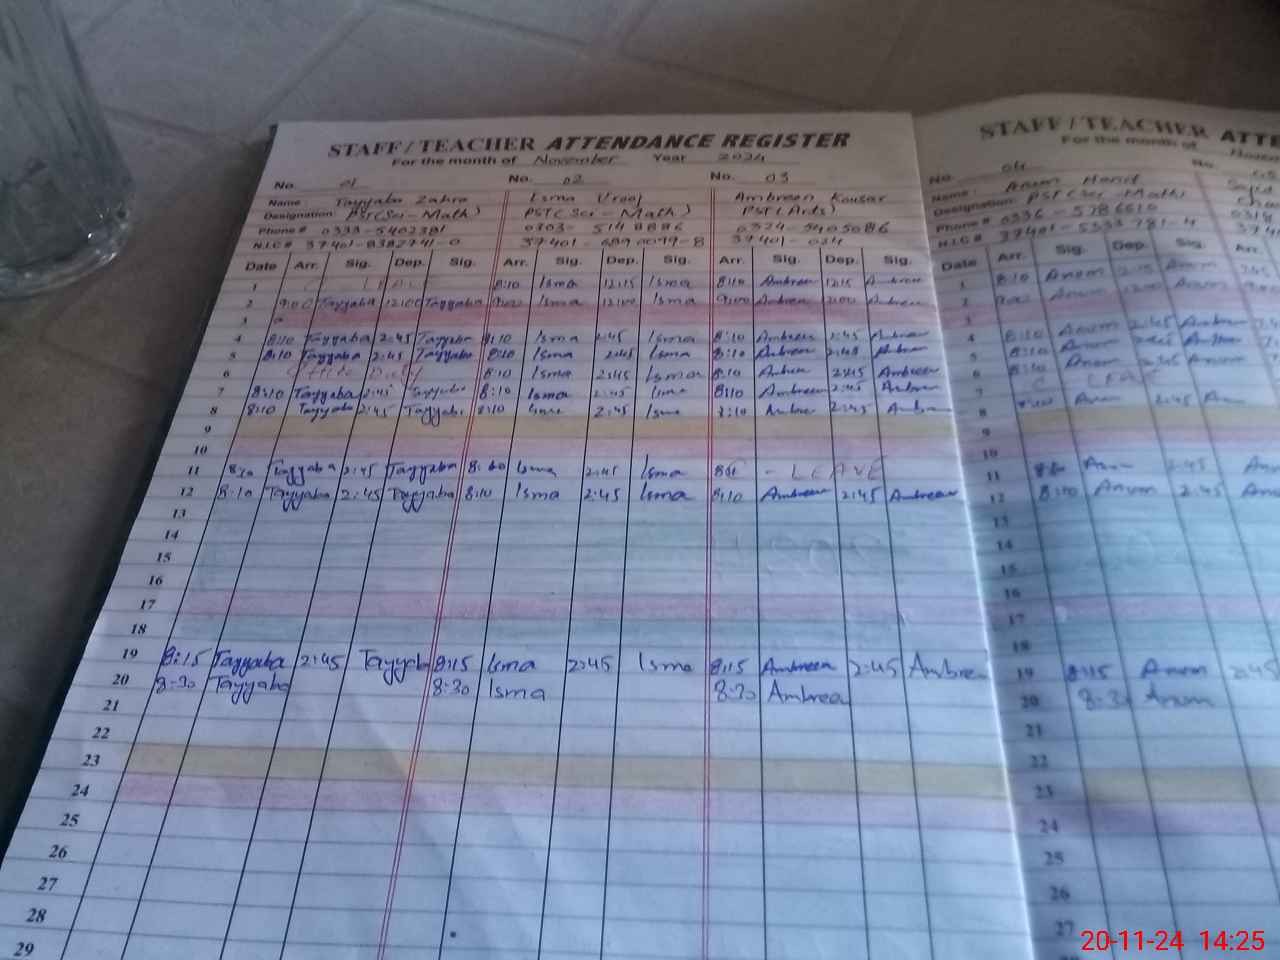 STAFF/TEACHER ATTENDANCE REGISTER
For the month of November Year 2024
No. 01 No. 02 No. 03
Name Tayyaba Zahra Isma Urooj Ambreen Kousar
Designation PST(Sci-Math) PST(Sci-Math) PST(Arts)
Phone# 0333-5402381 0303-5148886 0324-5405086
N.I.C# 37401-8382741-0 37401-6890099-8 37401-034
Date Arr. Sig. Dep. Sig. Arr. Sig. Dep. Sig. Arr. Sig. Dep. Sig.
1 8:10 Isma 12:15 Isma 8:10 Ambreen 12:15 Ambreen
2 9:00 Tayyaba 12:00 Tayyaba 9:00 Isma 12:00 Isma 9:00 Ambreen 12:00 Ambreen
3
4 8:10 Tayyaba 2:45 Tayyaba 8:10 Isma 2:45 Isma 8:10 Ambreen 2:45 Ambreen
5 8:10 Tayyaba 2:45 Tayyaba 8:10 Isma 2:45 Isma 8:10 Ambreen 2:45 Ambreen
6 Office Duty 8:10 Isma 2:45 Isma 8:10 Ambreen 2:45 Ambreen
7 8:10 Tayyaba 2:45 Tayyaba 8:10 Isma 2:45 Isma 8:10 Ambreen 2:45 Ambreen
8 8:10 Tayyaba 2:45 Tayyaba 8:10 Isma 2:45 Isma 8:10 Ambreen 2:45 Ambreen
9
10
11 8:10 Tayyaba 2:45 Tayyaba 8:10 Isma 2:45 Isma - LEAVE
12 8:10 Tayyaba 2:45 Tayyaba 8:10 Isma 2:45 Isma 8:10 Ambreen 2:45 Ambreen
13
14
15
16
17
18
19 8:15 Tayyaba 2:45 Tayyaba 8:15 Isma 2:45 Isma 8:15 Ambreen 2:45 Ambreen
20 8:30 Tayyaba 8:30 Isma 8:30 Ambreen
21
22
23
24
25
26
27
28
29
STAFF/TEACHER ATTE
For the month of
No. 04 No. 05
Name: Anum
Designation: PST(Sci-Math)
Phone# 0336-5786616
N.I.C# 37401-5333781-4
Date Arr. Sig. Dep. Sig. Arr.
1 8:10 Anum 2:15 Anum
2 9:00 Anum 12:00 Anum
3
4 8:10 Anum 2:45 Anum
5 8:10 Anum 2:45 Anum
6 8:10 Anum 2:45 Anum
7 LEAVE
8 8:10 Anum 2:45
9
10
11 8:10 Anum 2:45
12 8:10 Anum 2:45
13
14
15
16
17
18
19 8:15 Anum 2:45
20 8:30 Anum
21
22
23
24
25
26
27
20-11-24 14:25